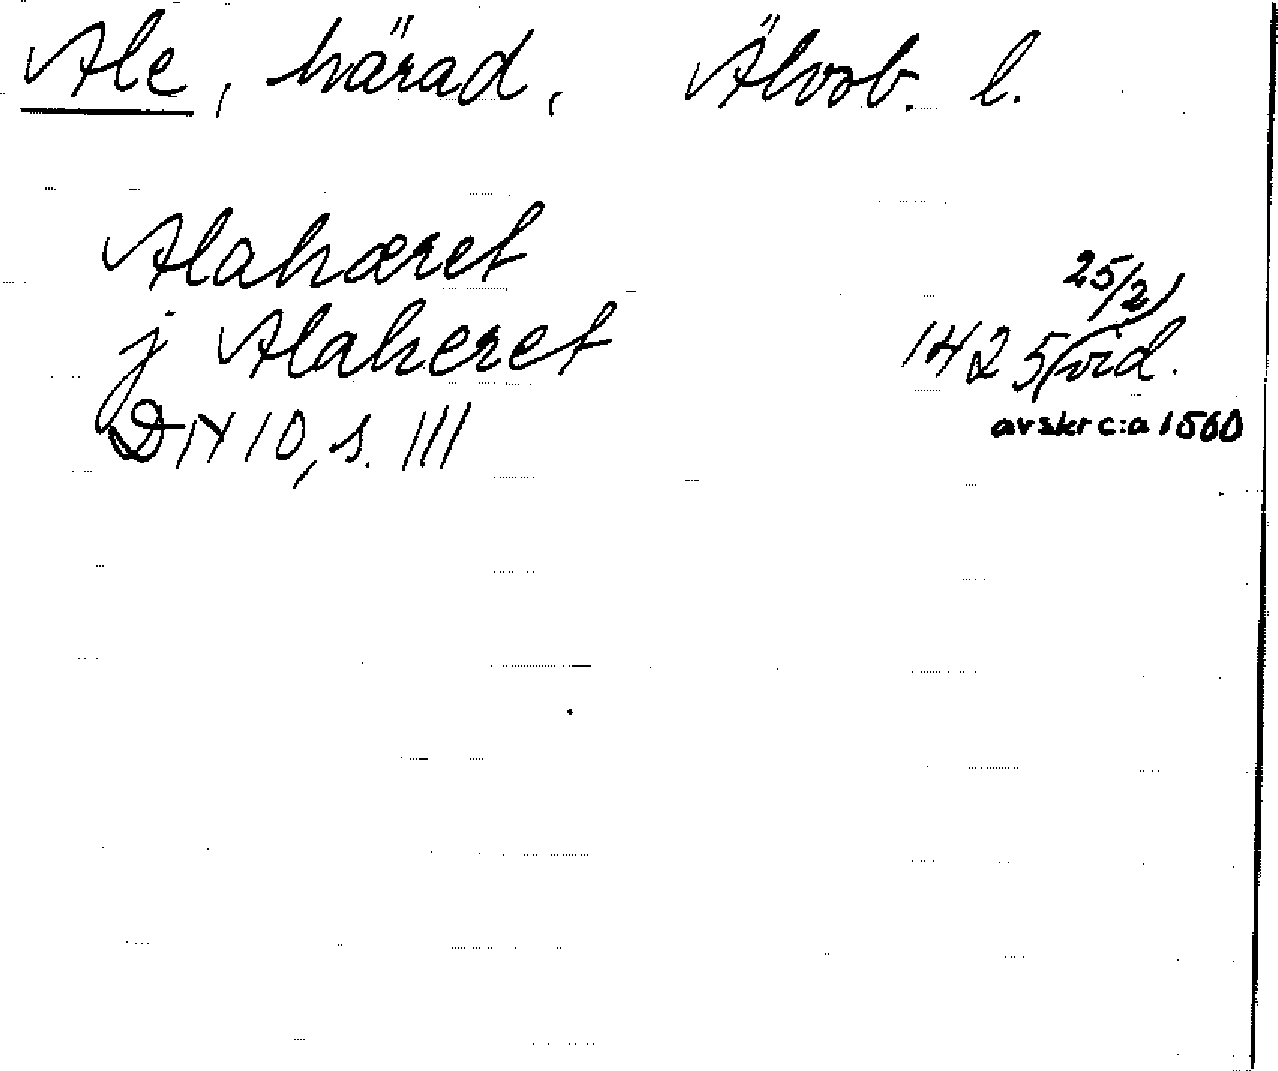 Ale, härad, Älvsb. l.
Alahæret
j Alaheret 1425 (25/2) vid.
DN 10, s. 111 avskr c:a 1560